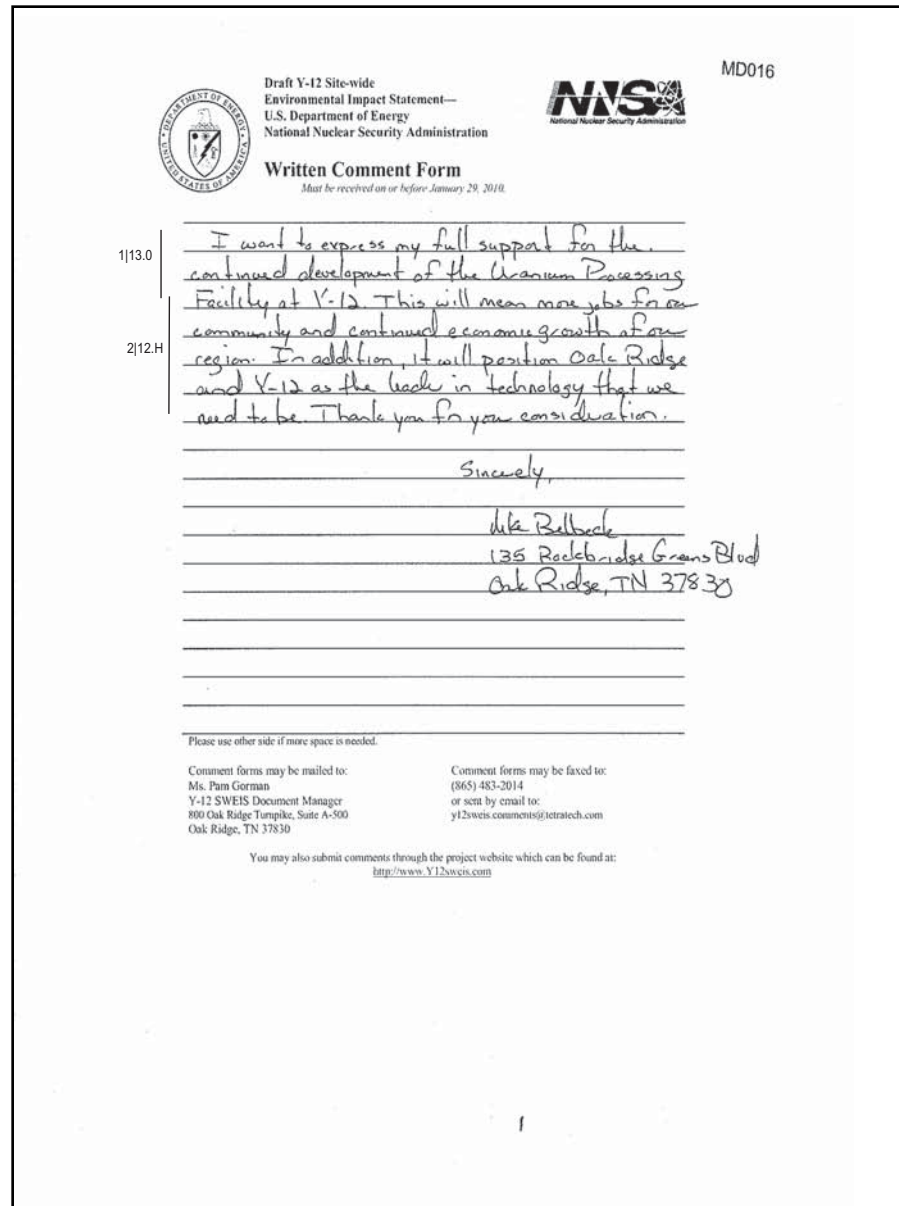 MD016
DEPARTMENT OF ENERGY
UNITED STATES OF AMERICA
Draft Y-12 Site-wide
Environmental Impact Statement—
U.S. Department of Energy
National Nuclear Security Administration
NNSA
National Nuclear Security Administration
Written Comment Form
Must be received on or before January 29, 2010.
1|13.0
I want to express my full support for the
continued development of the Uranium Processing
Facility at Y-12. This will mean more jobs for our
community and continued economic growth of our
2|12.H
region. In addition, it will position Oak Ridge
and Y-12 as the leader in technology that we
need to be. Thank you for your consideration.
Sincerely,
Mike Belbeck
135 Rockbridge Greens Blvd
Oak Ridge, TN 37830
Please use other side if more space is needed.
Comment forms may be mailed to:
Ms. Pam Gorman
Y-12 SWEIS Document Manager
800 Oak Ridge Turnpike, Suite A-500
Oak Ridge, TN 37830
Comment forms may be faxed to:
(865) 483-2014
or sent by email to:
y12sweis.comments@tetratech.com
You may also submit comments through the project website which can be found at:
http://www.Y12sweis.com
1